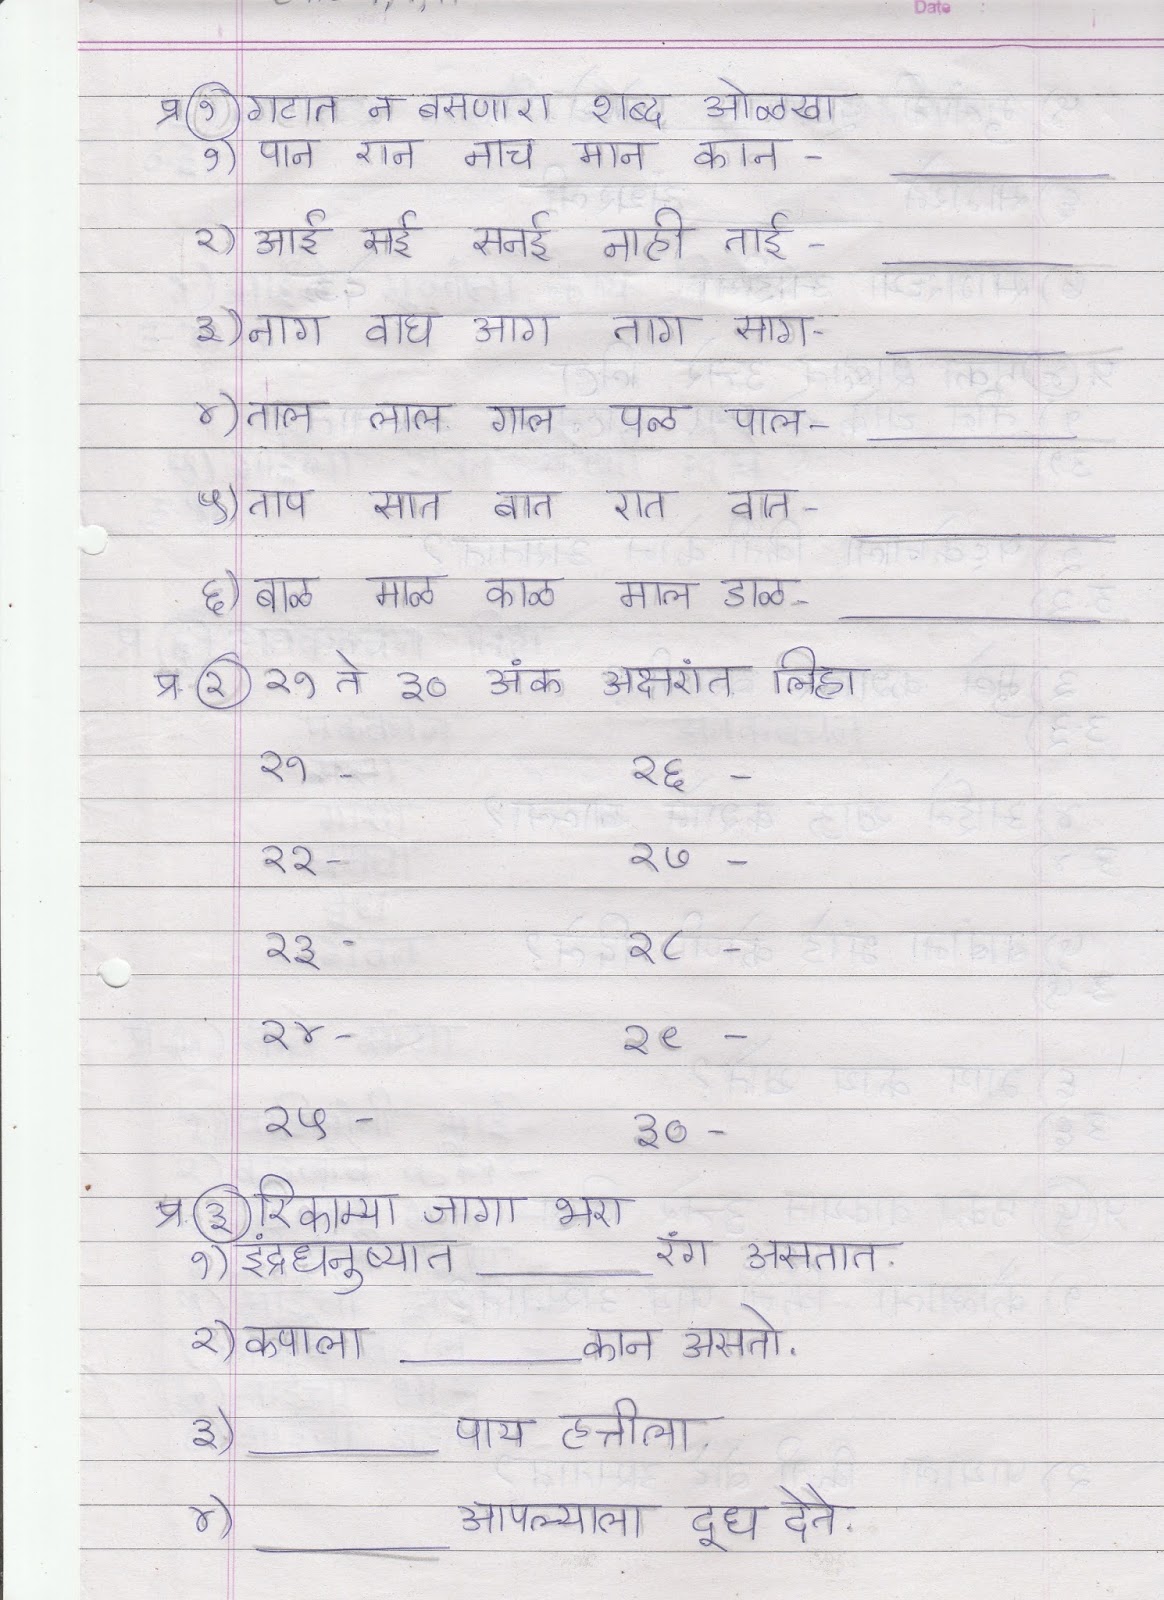 Date :
प्र १ गटात न बसणारा शब्द ओळखा
१) पान रान नाच मान कान -
२) आई सई सनई नाही ताई -
३) नाग वाघ आग ताग साग-
४) ताल लाल गाल पळ पाल-
५) ताप सात बात रात वात-
६) बाळ माळ काळ माल डाळ-
प्र. २ २१ ते ३० अंक अक्षरांत लिहा
२१ - २६ -
२२ - २७ -
२३ - २८ -
२४ - २९ -
२५ - ३० -
प्र. ३ रिकाम्या जागा भरा
१) इंद्रधनुष्यात ______ रंग असतात.
२) कपाला ______ कान असतो.
३) ______ पाय हत्तीला.
४) ______ आपल्याला दूध देते.